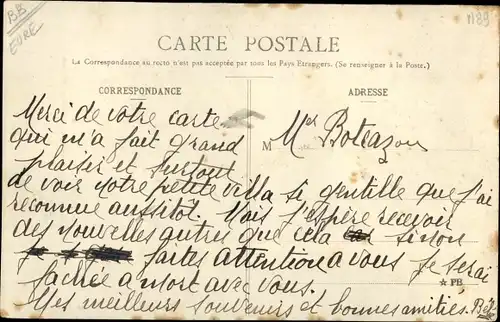 BB
EURE
1189
CARTE POSTALE
La Correspondance au recto n'est pas acceptée par tous les Pays Etrangers. (Se renseigner à la Poste.)
CORRESPONDANCE
ADRESSE
Merci de votre carte
qui m'a fait grand
plaisir et surtout
de voir votre petite villa si gentille que j'ai
reconnue aussitôt. Mais j'espère recevoir
des nouvelles autres que cela sinon
faites attention à vous je serai
fachée a mort avec vous.
Mes meilleurs souvenirs et bonnes amitiés.
M
☆ PB